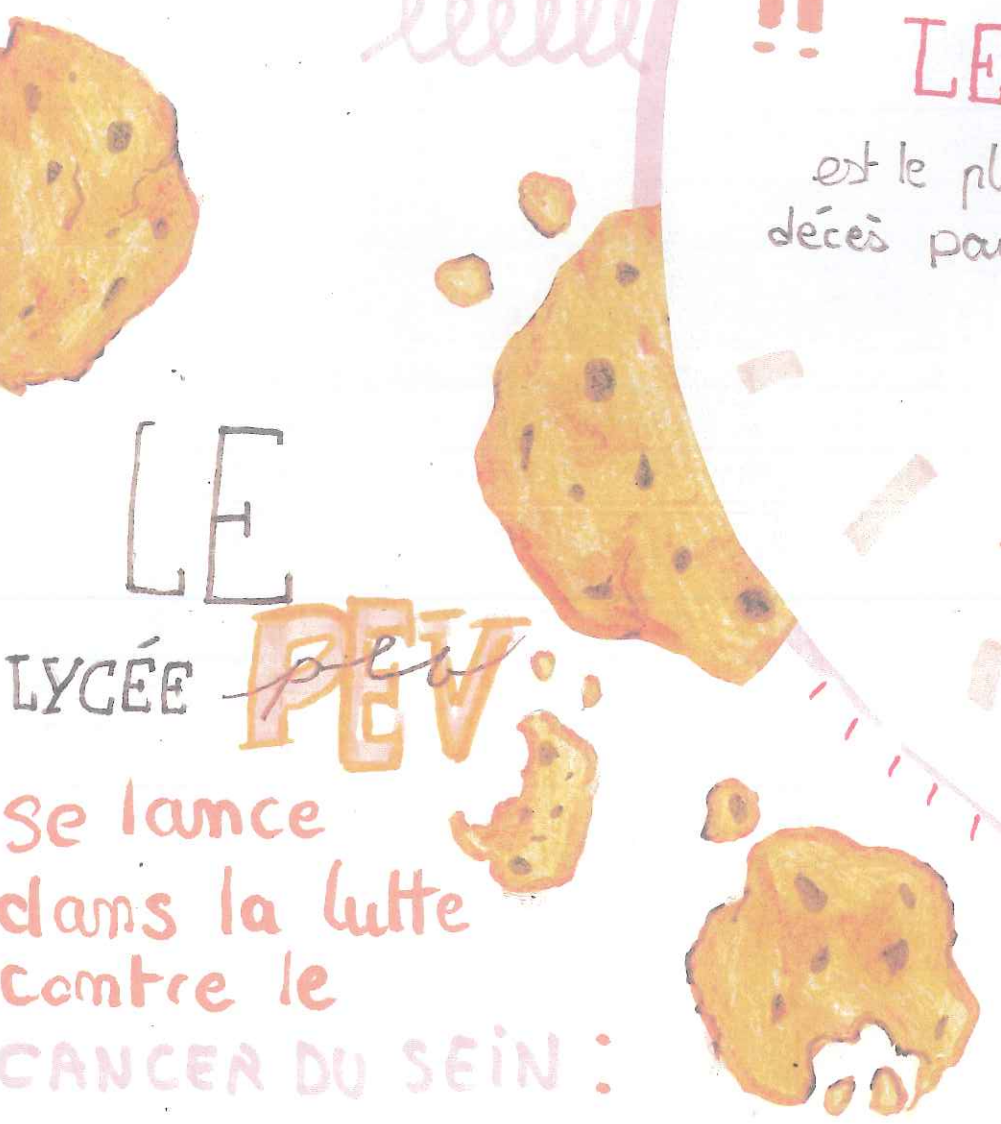 !!
LE
est le
décès
LE
LYCÉE PEV
pev
se lance
dans la lutte
contre le
CANCER DU SEIN :